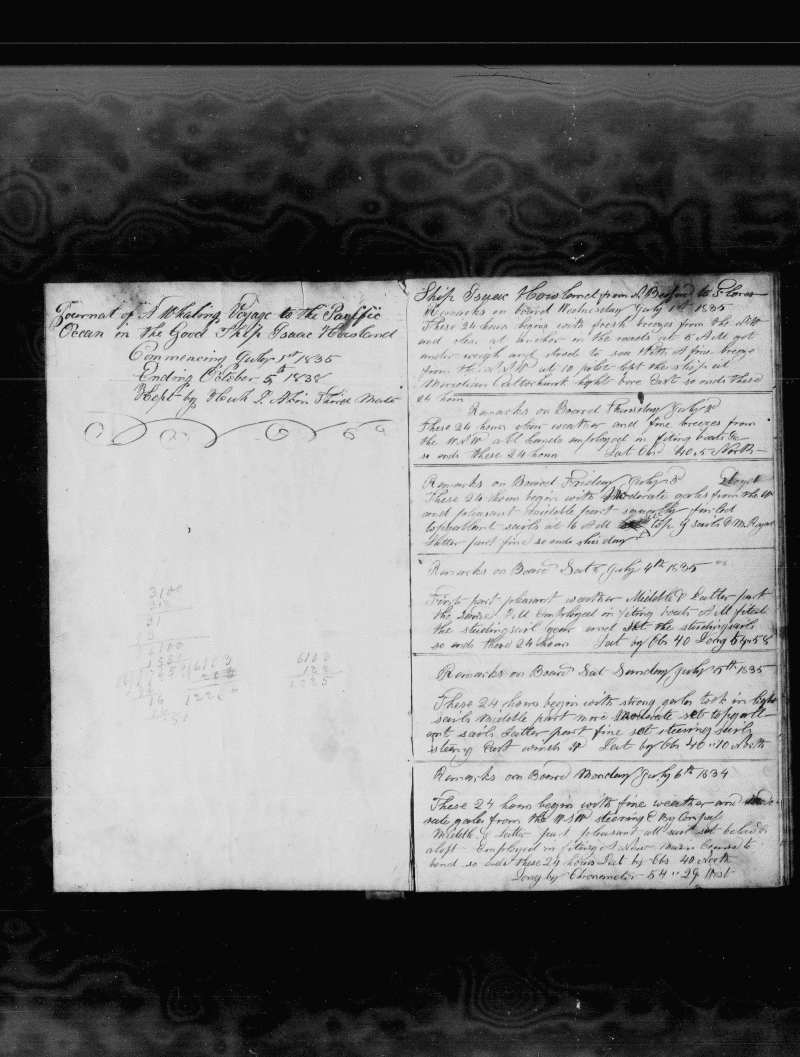 Journal of A Whaling Voyage to the Pacific
Ocean in the Good Ship Isaac Howland
Commencing July 1st 1835
Ending October 5th 1838
Kept by P. Akin Third Mate
3100
310
31
6100
6103
6103
122
Ship Isaac Howland from N. Bedford to Flores
Remarks on board Wednesday July 1st 1835
These 24 hours begins with fresh breezes from the NW
and clear at anchor in the roads at 5 AM got
under weigh and stood to sea with A fine breeze
from the at 10 pilot left the ship at
Meridian Cuttahunk light bore East so ends these
24 hours
Remarks on Board Thursday July 2d
These 24 hours clear weather and fine breezes from
the WSW all hands employed in fiting boats &c
so ends these 24 hours Lat Obs 40..5 North
Remarks on Board Friday July 3d
These 24 hours begin with Moderate gales from the W
and pleasant Middle part squally furled
topgallant sails at 6 AM set top G sails & M Royal
Latter part fine so ends this day
Remarks on Board Sat July 4th 1835
First part pleasant weather Middle & Latter part
the same PM Employed in fiting boats AM fited
the studingsail gear and set the studingsails
so ends these 24 hours Lat by Obs 40 Long 54..58
Remarks on Board Sat Sunday July 5th 1835
These 24 hours begin with strong gales took in light
sails Middle part more Moderate set topgall-
ant sails Latter part fine set steering sails
steering East winds W Lat by Obs 40"10 North
Remarks on Board Monday July 6th 1834
These 24 hours begin with fine weather and mode-
rate gales from the WSW steering E by Compass
Middle & Latter part pleasant all sail set below &
aloft Employed in fiting A New Main Course to
bend so ends these 24 hours Lat by Obs 40 North
Long by Chronometer 54"29 West